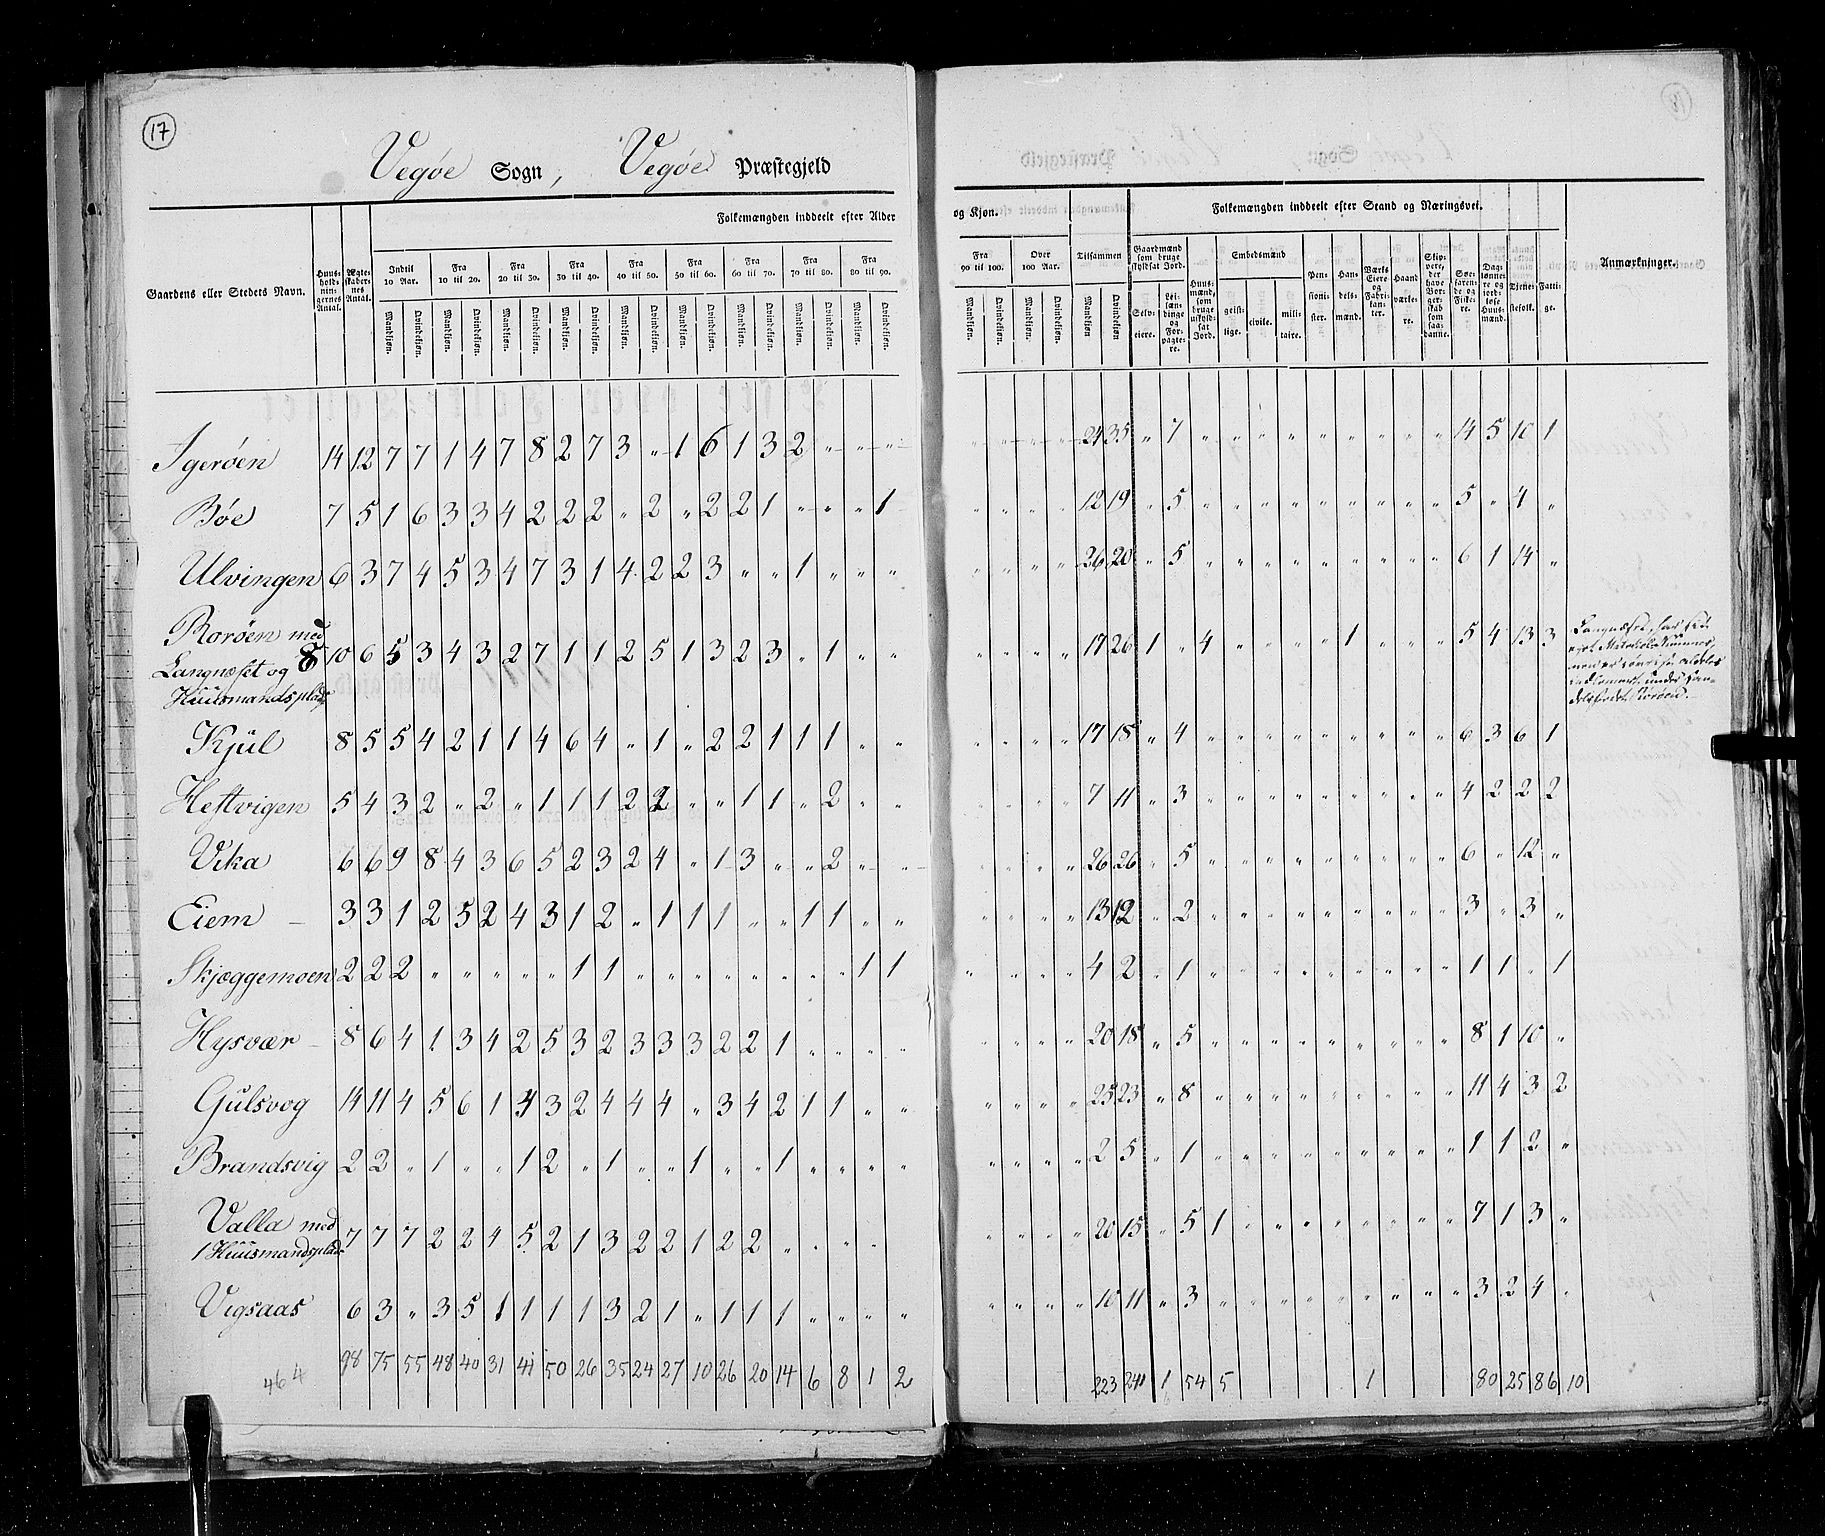 17
Vegøe Sogn, Vegøe Præstegjeld
Folkemængden inddeelt efter Alder og Kjøn.
Folkemængden inddeelt efter Stand og Næringsvei.
Gaardens eller Stedets Navn.
Huusholdningernes Antal.
Ægteskabernes Antal.
Indtil 10 Aar.
Fra 10 til 20.
Fra 20 til 30.
Fra 30 til 40.
Fra 40 til 50.
Fra 50 til 60.
Fra 60 til 70.
Fra 70 til 80.
Fra 80 til 90.
Fra 90 til 100.
Over 100 Aar.
Tilsammen
Mandkjøn. Qvindekjøn.
Gaardmænd som bruge skyldsat Jord.
Selveiere.
Leilændinge og Forpagtere.
Huusmænd, som bruge uskyldsat Jord.
Embedsmænd
geistlige.
civile.
militaire.
Pensionister.
Handelsmænd.
Værkseiere og Fabrikanter.
Haandværkere.
Skippere, der have Borgerskab som saadanne.
Søefarende og Fiskere.
Daglønnere og jordløse Huusmænd.
Tjenestefolk.
Fattige.
Anmærkninger.
Igerøen 14 12 7 7 1 4 7 8 2 7 3 " 1 6 1 3 2 " " " " " " " 24 35 " 7 " " " " " " " " " 14 5 10 1
Bøe 7 5 1 6 3 3 4 2 2 2 " 2 " 2 2 1 " " " 1 " " " " 12 19 " 5 " " " " " " " " " 5 " 4 "
Ulvingen 6 3 7 4 5 3 4 7 3 1 4 2 2 3 " " 1 " " " " " " " 26 20 " 5 " " " " " " " " " 6 1 14 "
Rorøen med
Langnæset og 8
Huusmandsplads 10 6 5 3 4 3 2 7 1 1 2 5 1 3 2 3 " 1 " " " " " " 17 26 1 " 4 " " " " 1 " " " 5 4 13 3
Kjül 8 5 5 4 2 1 1 4 6 4 " 1 " 2 2 1 1 1 " " " " " " 17 18 " 4 " " " " " " " " " 6 3 6 1
Heftvigen 5 4 3 2 " 2 " 1 1 1 2 2 " " 1 1 " 2 " " " " " " 7 11 " 3 " " " " " " " " " 4 2 2 2
Vika 6 6 9 8 4 3 6 5 2 3 2 4 " 1 3 " " 2 " " " " " " 26 26 " 5 " " " " " " " " " 6 " 12 "
Eiem 3 3 1 2 5 2 4 3 1 2 " 1 1 1 " " 1 1 " " " " " " 13 12 " 2 " " " " " " " " " 3 " 3 "
Skjæggemoen 2 2 2 " " " " " 1 1 " " " " " " " " 1 1 " " " " 4 2 " 1 " " " " " " " " " 1 1 " 1
Hysvær 8 6 4 1 3 4 2 5 3 2 3 3 3 2 2 1 " " " " " " " " 20 18 " 5 " " " " " " " " " 8 1 10 "
Gulsvog 14 11 4 5 6 1 4 3 2 4 4 4 " 3 4 2 1 1 " " " " " " 25 23 " 8 " " " " " " " " " 11 4 3 2
Brandsvig 2 2 " 1 " " 1 2 " 1 " " 1 " " 1 " " " " " " " " 2 5 " 1 " " " " " " " " " 1 1 2 "
Valla med
1 Huusmandsplads 7 7 7 2 2 4 5 2 1 3 2 2 1 2 2 " " " " " " " " 20 15 " 5 1 " " " " " " " " 7 1 3 "
Vigsaas 6 3 " 3 5 1 1 1 1 3 2 1 " 1 1 1 " " " " " " " " 10 11 " 3 " " " " " " " " " 3 2 4 "
464 98 75 55 48 40 31 41 50 26 35 24 27 10 26 20 14 6 8 1 2 223 241 1 54 5 1 80 25 86 10